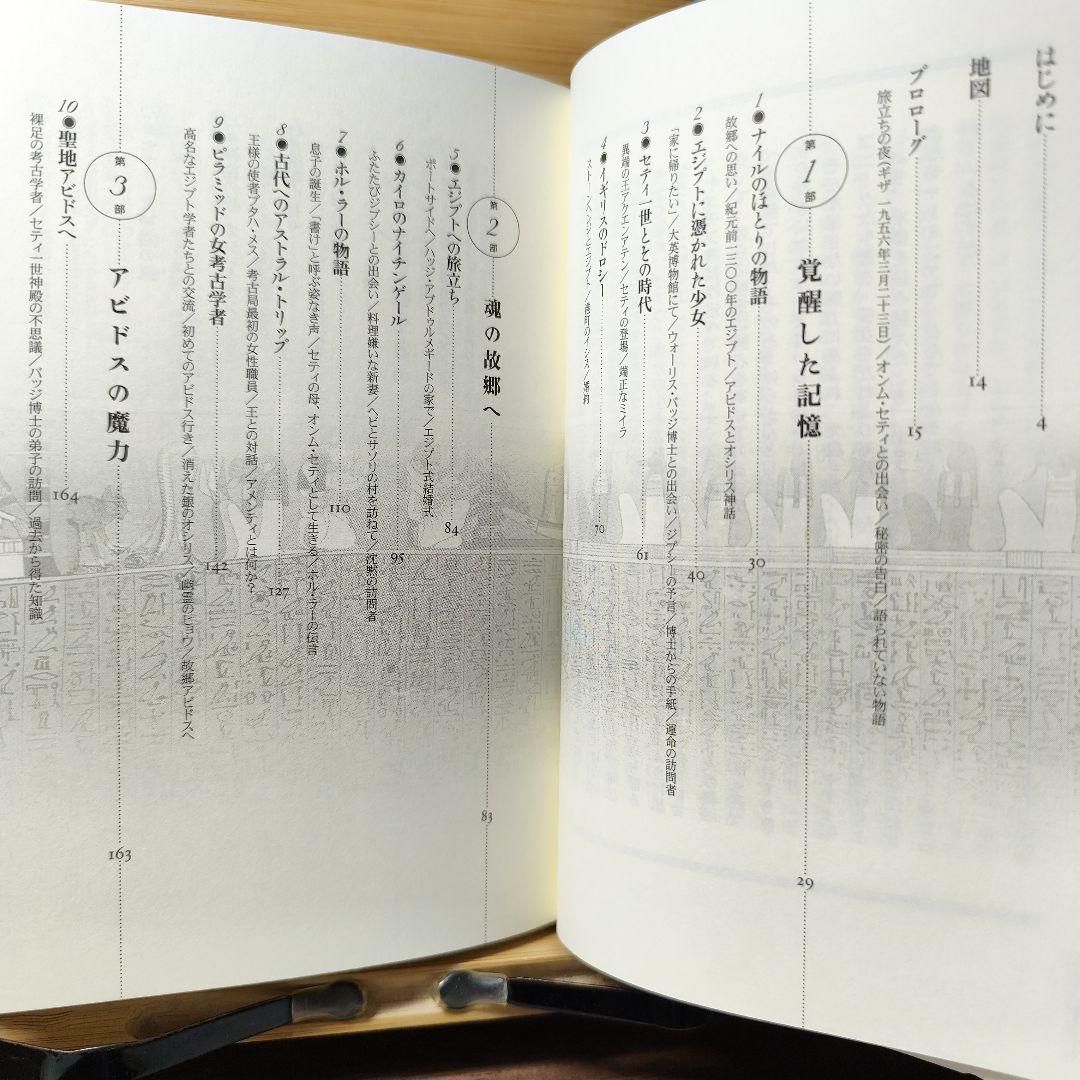 はじめに 4
地図 14
プロローグ 15
旅立ちの夜(ギザ 一九五六年三月二十三日)／オンム・セティとの出会い／秘密の告白／語られていない物語
第1部 覚醒した記憶 29
1●ナイルのほとりの物語 30
故郷への思い／紀元前一三〇〇年のエジプト／アビドスとオシリス神話
2●エジプトに憑かれた少女 40
「家に帰りたい」／大英博物館にて／ウォーリス・バッジ博士との出会い／ジプシーの予言／博士からの手紙／運命の訪問者
3●セティ一世とその時代 61
異端の王アクエンアテン／セティの登場／端正なミイラ
4●イギリスのドロシー 70
ストーンヘンジとエジプト／港町のイシス／婚約
第2部 魂の故郷へ 83
5●エジプトへの旅立ち 84
ポートサイドへ／ハッジ・アブドゥルメギードの家で／エジプト式結婚式
6●カイロのナイチンゲール 95
ふたたびジプシーとの出会い／料理嫌いな新妻／ヘビとサソリの村を訪ねて／沈黙の訪問者
7●ホル・ラーの物語 110
息子の誕生／「書け」と呼ぶ姿なき声／セティの母、オンム・セティとして生きる／ホル・ラーの伝言
8●古代へのアストラル・トリップ 127
王様の使者プタハ・メス／考古局最初の女性職員／王との対話／アメンティとは何か?
9●ピラミッドの女考古学者 142
高名なエジプト学者たちとの交流／初めてのアビドス行き／消えた銀のオシリス／幽霊のヒョウ／故郷アビドスへ
第3部 アビドスの魔力 163
10●聖地アビドスへ 164
裸足の考古学者／セティ一世神殿の不思議／バッジ博士の弟子の訪問／過去から得た知識